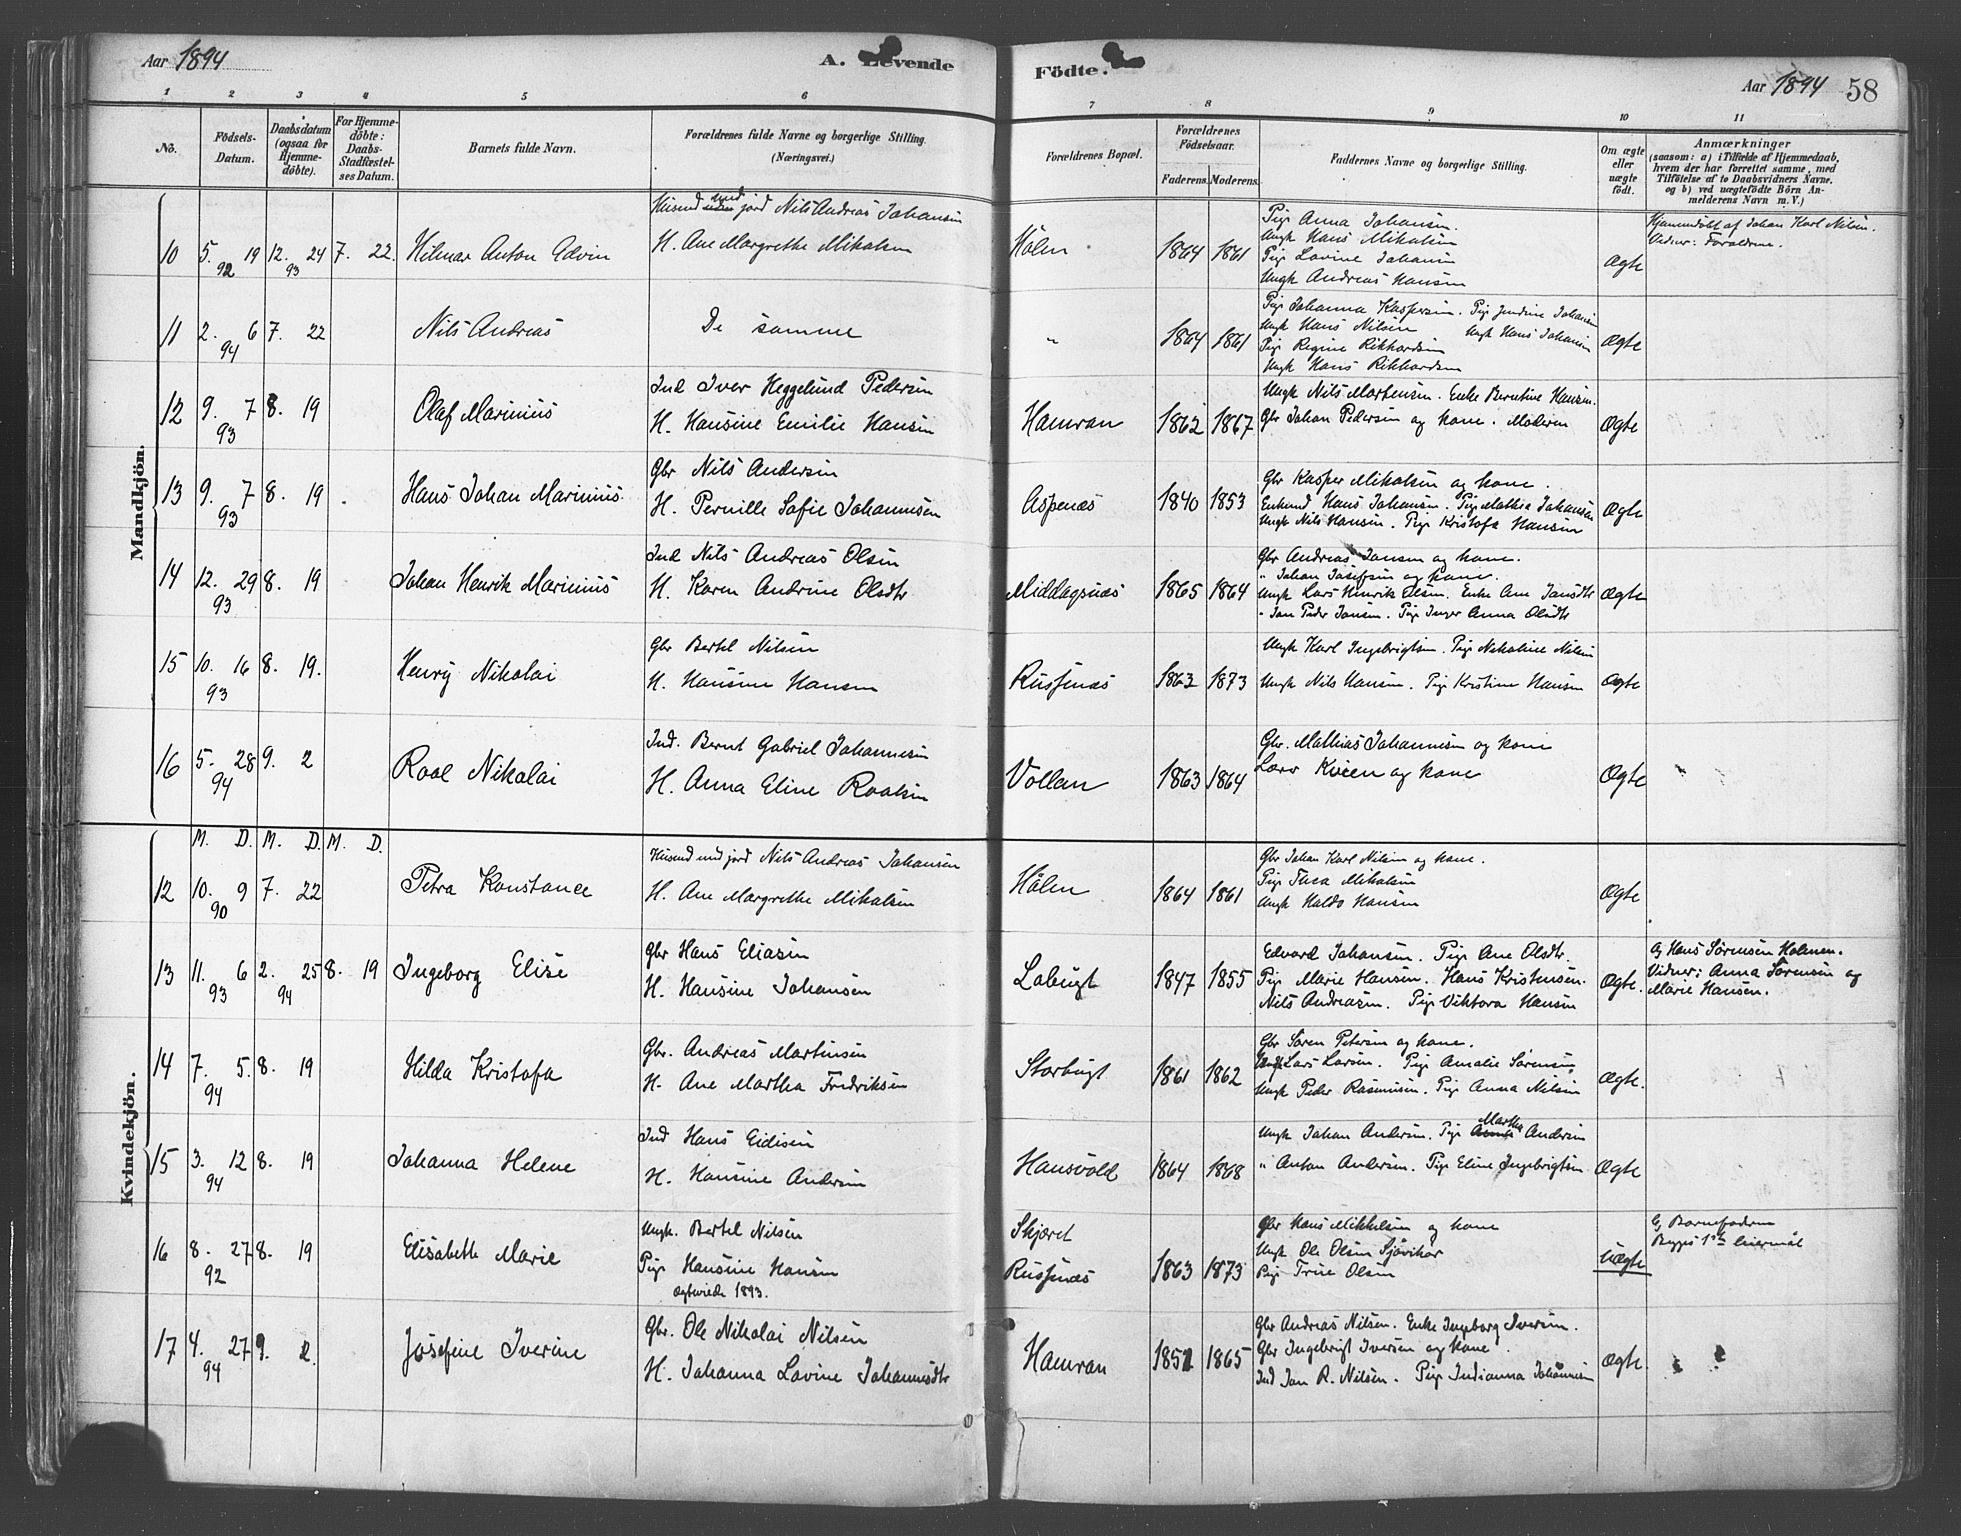 Aar 1894
A. Levende
Födte.
Aar 1894 58
1 2 3 4 5 6 7 8 9 10 11
No.
Födsels-Datum.
Daabsdatum (ogsaa for Hjemme-döbte).
For Hjemme-döbte: Daabs-Stadfæstel-ses Datum.
Barnets fulde Navn.
Forældrenes fulde Navne og borgerlige Stilling. (Næringsvei.)
Forældrenes Bopæl.
Forældrenes Födselsaar.
Faderens. Moderens.
Faddernes Navne og borgerlige Stilling.
Om ægte eller uægte födt.
Anmærkninger
(saasom: a) i Tilfælde af Hjemmedaab, hvem der har forrettet samme, med Tilföielse af to Daabsvidners Navne, og b) ved uægtefödte Börn An-melderens Navn m. V.)
Mandkjön.
Husmd med jord Nils Andreas Johansen
10 5. 19 92 12. 24 93 7. 22. Hilmar Anton Edvin
H. Ane Margrethe Mikalsen
Hölen 1864 1861
Pige Anna Johansen.
Ungk Hans Mikalsen
Pige Lovine Johansen
Ungk Andreas Hansen
Ægte
Hjemmedöbt af Johan Karl Nilsen.
Vidner: Forældrene.
11 2. 6 94 7. 22 Nils Andreas De samme
" 1864 1861
Pige Johanna Kaspersen. Pige Jendine Johansen
Ungk Hans Nilsen Ungk Hans Johansen
Pige Regine Rikhardsen
Ungk Hans Rikhardsen
Ægte
12 9. 7 93 8. 19 Olaf Marinius
Ind Iver Heggelund Pedersen
H. Hansine Emilie Hansen
Hamran 1862 1867
Ungk Nils Mortensen. Enke Berntine Hansen.
Gbr Johan Pedersen og kone. Moderen
Ægte
13 9. 7 93 8. 19 Hans Johan Marinius.
Gbr Nils Andersen
H. Pernille Sofie Johannesen
Aspenæs 1840 1853
Gbr Kasper Mikalsen og kone.
Enkemd Hans Johansen. Pige Mathea Johansen
Ungk Nils Hansen. Pige Kristofa Hansen
Ægte
14 12. 29 93 8. 19 Johan Henrik Marinius
Ind Nils Andreas Olsen
H. Karen Andrine Olsdtr
Middagsnæs 1865 1864
Gbr Andreas Jansen og kone.
" Johan Josefsen og kone.
Ungk Lars Henrik Olsen. Enke Ane Jansdtr
" Jan Peder Jansen. Pige Inger Anna Olsdtr
Ægte
15 10. 16 93 8. 19. Henry Nikolai
Gbr Bertel Nilsen
H. Hansine Hansen
Russenæs 1863 1873
Ungk Karl Ingebrigtsen. Pige Nikoline Nilsen
Ungk Nils Hansen. Pige Kristine Hansen
Ægte
16 5. 28 94 9. 2 Roal Nikolai
Ind. Bernt Gabriel Johannesen
H. Anna Eline Roalsen
Vollan 1863 1864
Gbr. Mathias Johannesen og kone
Lærer og kone
Ægte
Kvindekjön.
M. D. M. D. M. D.
12 10. 9 90 7. 22 Petra Konstance
Husmd med jord Nils Andreas Johansen
H. Ane Margrethe Mikalsen
Hölen 1864 1861
Gbr Johan Karl Nilsen og kone.
Pige Thea Mikalsen
Ungk Haldo Hansen
Ægte
13 11. 6 93 2. 25 94 8. 19 Ingeborg Elise
Gbr Hans Eliasen
H. Hansine Johansen
Lobugt 1847 1855
Edvard Johansen. Pige Ane Olsdtr.
Pige Marie Hansen. Hans Kristensen.
Nils Andreasen. Pige Viktora Hansen
Ægte.
Af Hans Sørensen Holmen.
Vidner: Anna Sørensen og
Marie Hansen.
14 7. 5. 94 8. 19 Hilda Kristofa
Gbr. Andreas Martinsen
H. Ane Martha Fredriksen
Storbugt 1861 1862
Gbr Søren Petersen og kone.
Ungk Lars Larsen. Pige Amalie Sørensen
Ungk Peder Rasmusen. Pige Anna Nilsen
Ægte.
15 3. 12 94 8. 19 Johanna Helene
Ind Hans Eidisen
H. Hansine Andersen
Hansvold 1864 1868
Ungk Johan Andersen. Pige Martha Andersen
" Anton Andersen. Pige Eline Ingebrigtsen
Ægte
16 8. 27 92 8. 19 Elisabeth Marie
Ungk. Bertel Nilsen
Pige Hansine Hansen
Ægteviede 1893.
Skjæret
Russenæs 1863 1873
Gbr Hans Mikkelsen og kone
Ungk Ole Olsen Sjövikar
Pige Trine Olsen
Uægte
Barnefaderen
Begges 1ste leiermål
17 4. 27 94 9. 2. Josefine Iverine
Gbr. Ole Nikolai Nilsen
H. Johanna Lovine Johannesdtr
Hamran 1865
Gbr Andreas Nilsen. Enke Ingeborg Iversen.
Gbr Ingebrigt Iversen og kone.
Ind Jan R. Nilsen. Pige Indianna Johannesen
Ægte